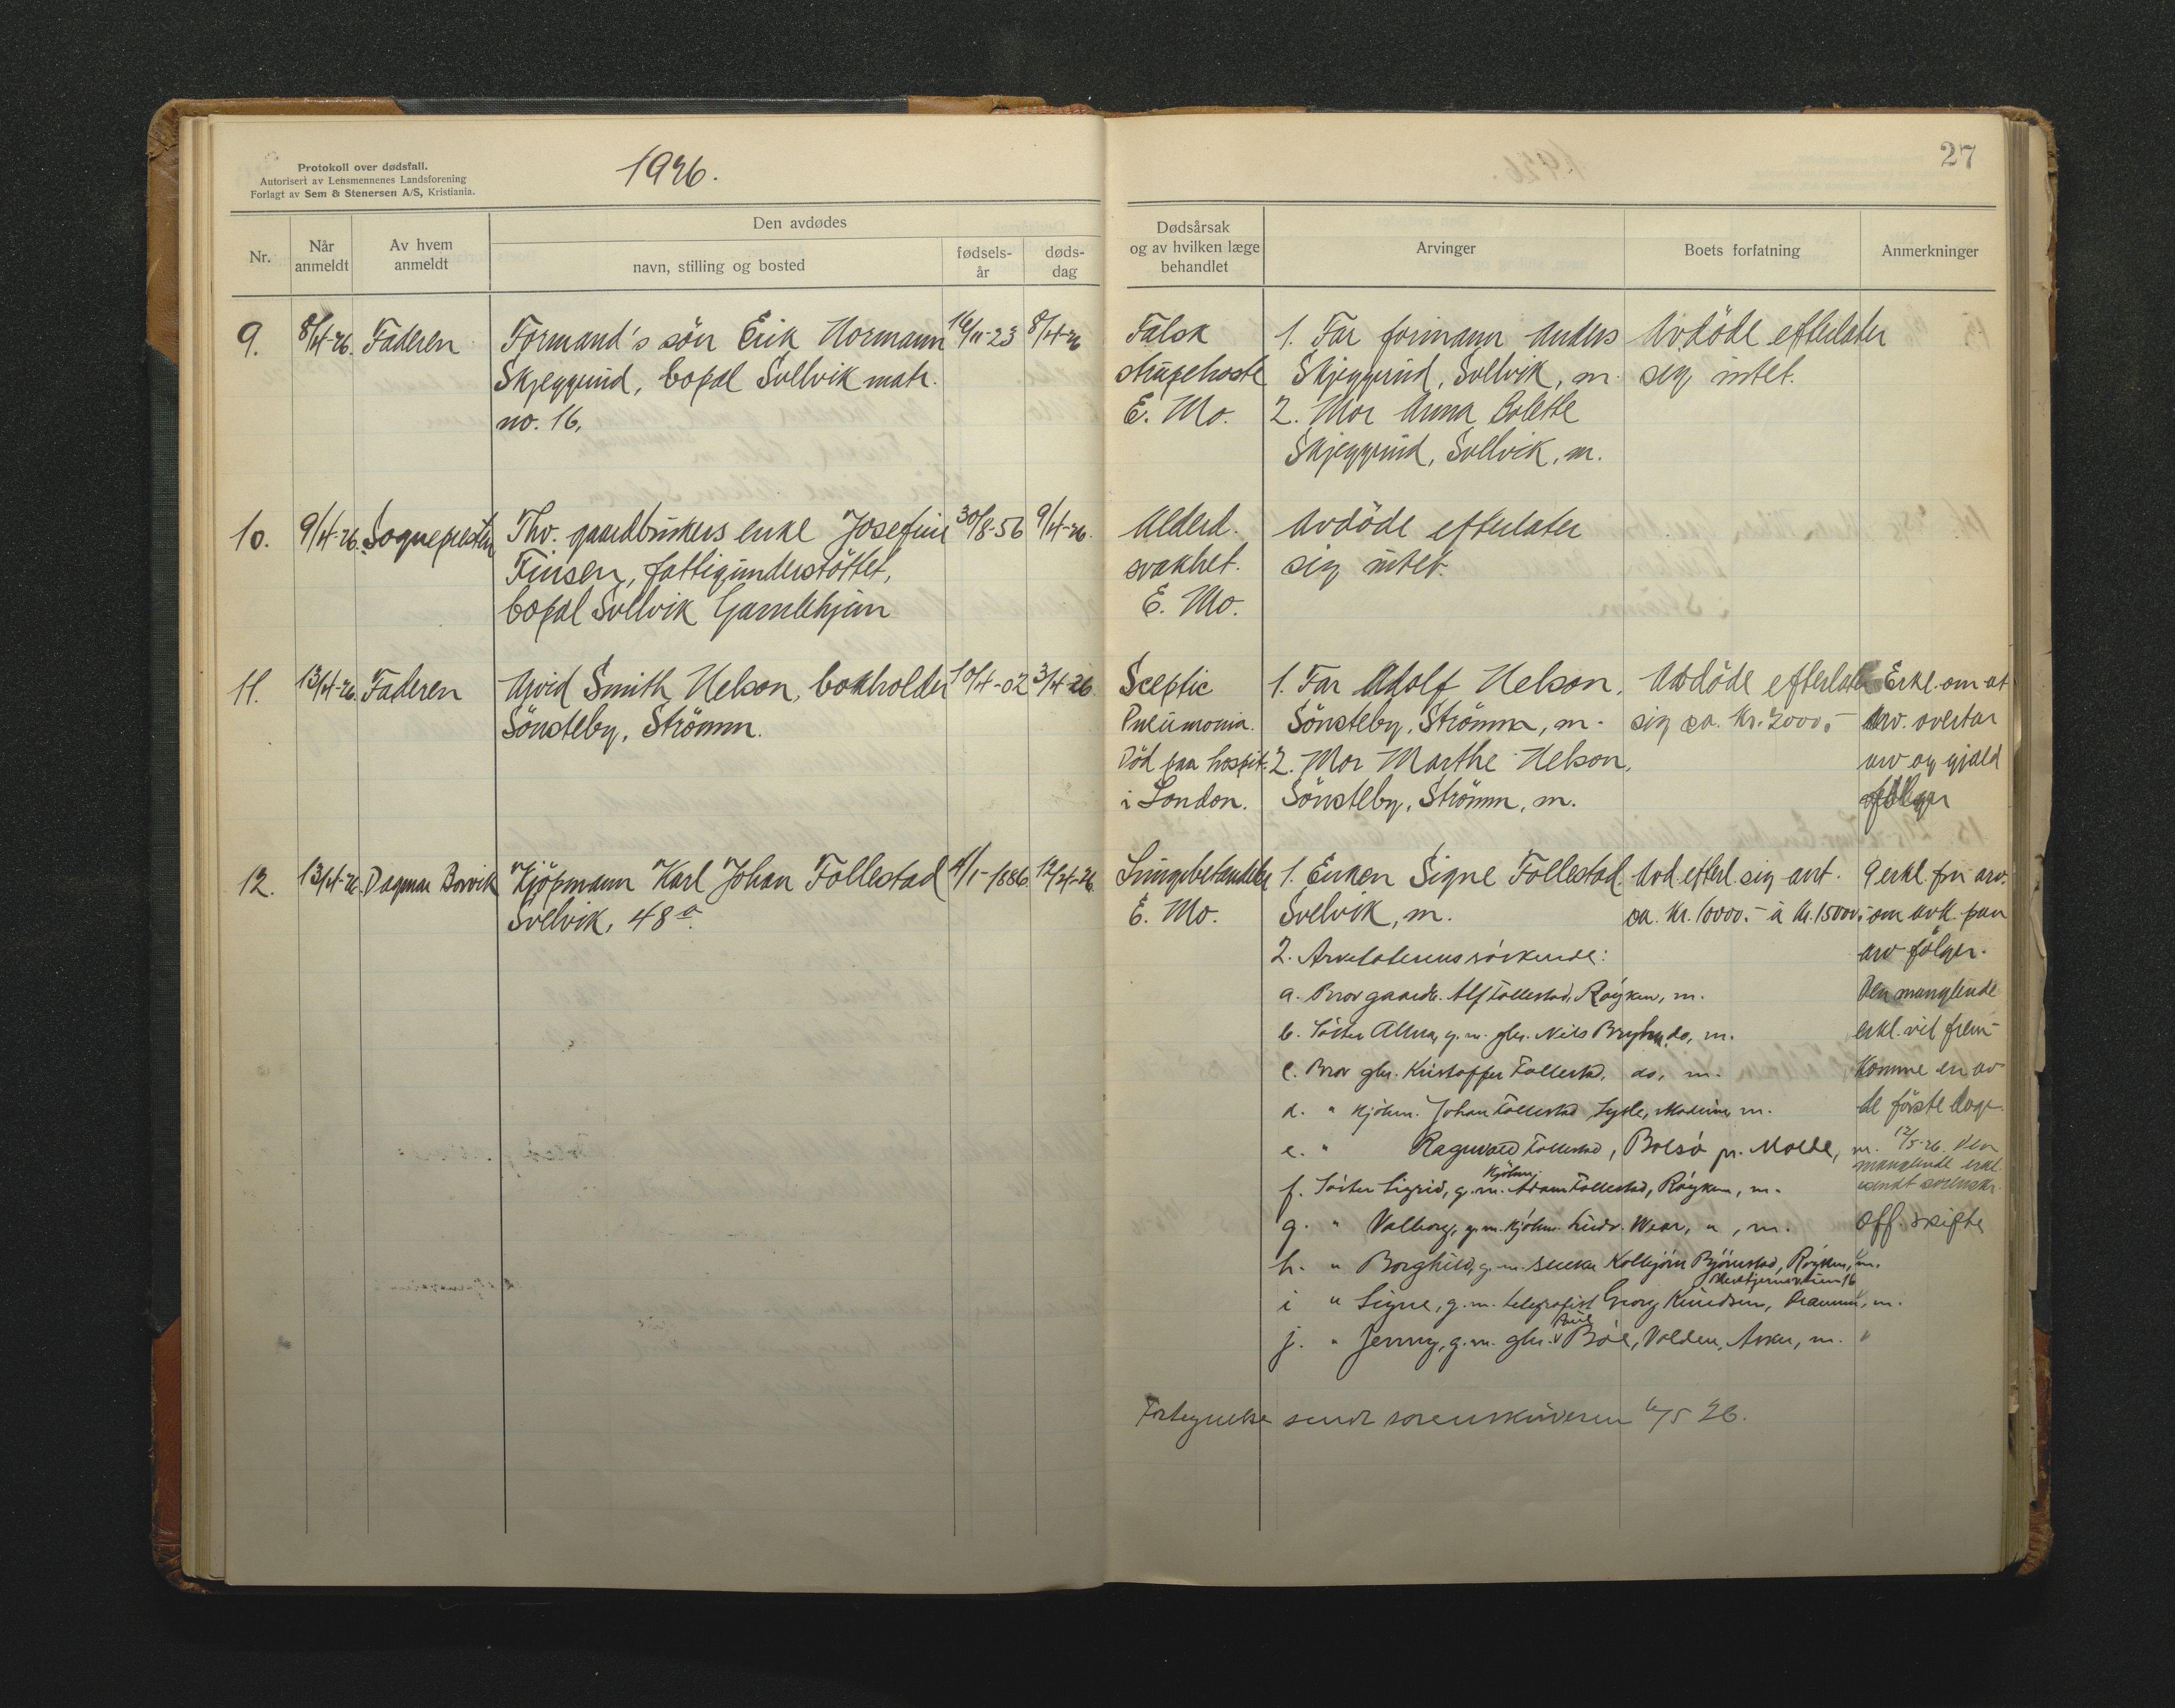 Protokoll over dødsfall.
Autorisert av Lensmennenes Landsforening
Forlagt av Sem & Stenersen A/S, Kristiania.
1926.
27
Nr.
Når anmeldt
Av hvem anmeldt
Den avdødes
navn, stilling og bosted
fødsels-år
døds-dag
Dødsårsak og av hvilken læge behandlet
Arvinger
Boets forfatning
Anmerkninger
9. 8/4-26. Faderen
Formand's sön Erik Normann
Skjeggerud, bopæl Svelvik matr.
no. 16.
16/11-23 8/4-26
Falsk
strupehoste
E. Mo.
1. Far formann Anders
Skjeggerud, Svelvik, m.
2. Mor Anna Bolette
Skjeggerud, Svelvik, m.
Avdöde efterlater
sig intet.
10. 9/4-26. Sognepresten
Fhv. gaardbrukers enke Josefine
Finsen, fattigunderstöttet,
bopæl Svelvik Gamlehjem
30/8-56 9/4-26.
Alderd.
svakhet.
E. Mo.
Avdöde efterlater
sig intet.
11. 13/4-26. Faderen
Arvid Smith Nelson, bokholder
Sönsteby, Strömm.
10/4-02 3/4-26.
Sceptic
Pneumonia.
Död paa hospit.
i London.
1. Far Adolf Nelson,
Sönsteby, Strömm, m.
2. Mor Marthe Nelson,
Sönsteby, Strömm, m.
Avdöde efterlater
sig ca. Kr. 2000.-
Erkl. om at
arv. overtar
arv og gjæld
følger
12. 13/4-26. Dagmar Borvik
Kjöpmann Karl Johan Follestad
Svelvik, 48a.
4/1-1886 12/4-26.
Lungebetændelse
E. Mo.
1. Enken Signe Follestad,
Svelvik, m.
2. Arvelaterens söskende:
a. Bror gaardb. Alf Follestad, Röyken, m.
b. Söster Alma, g. m. gbr. Nils Bryhn, do, m.
c. Bror gbr. Kristoffer Follestad, do, m.
d. " Kjöbm. Johan Follestad m.
e. " Ragnvald Follestad, Bolsö pr. Molde, m.
f. Söster Sigrid, g. m. Kjöbm. Adam Follestad, Röyken, m.
g. " Valborg, g. m. Kjöbm. Ludv. Wear, ", m.
h. " Borghild, g. m. Kolbjörn Björnstad, Röyken, m.
i " Signe, g. m. telegrafist Georg Knudsen, Drammen, m.
j. " Jenny, g. m. gbr. Paul Böe, Volden, Asker, m.
Avd. efterl. sig ant.
ca. Kr. 10000.- à Kr. 15000.-
9 erkl. fra arv.
om avk. paa
arv følger.
Den manglende
erkl. vil frem-
komme en av
de förste dage.
12/5-26. Den
manglende erkl.
sendt sorenskr.
Off. skifte
Fortegnelse sendt sorenskriveren 6/5 26.